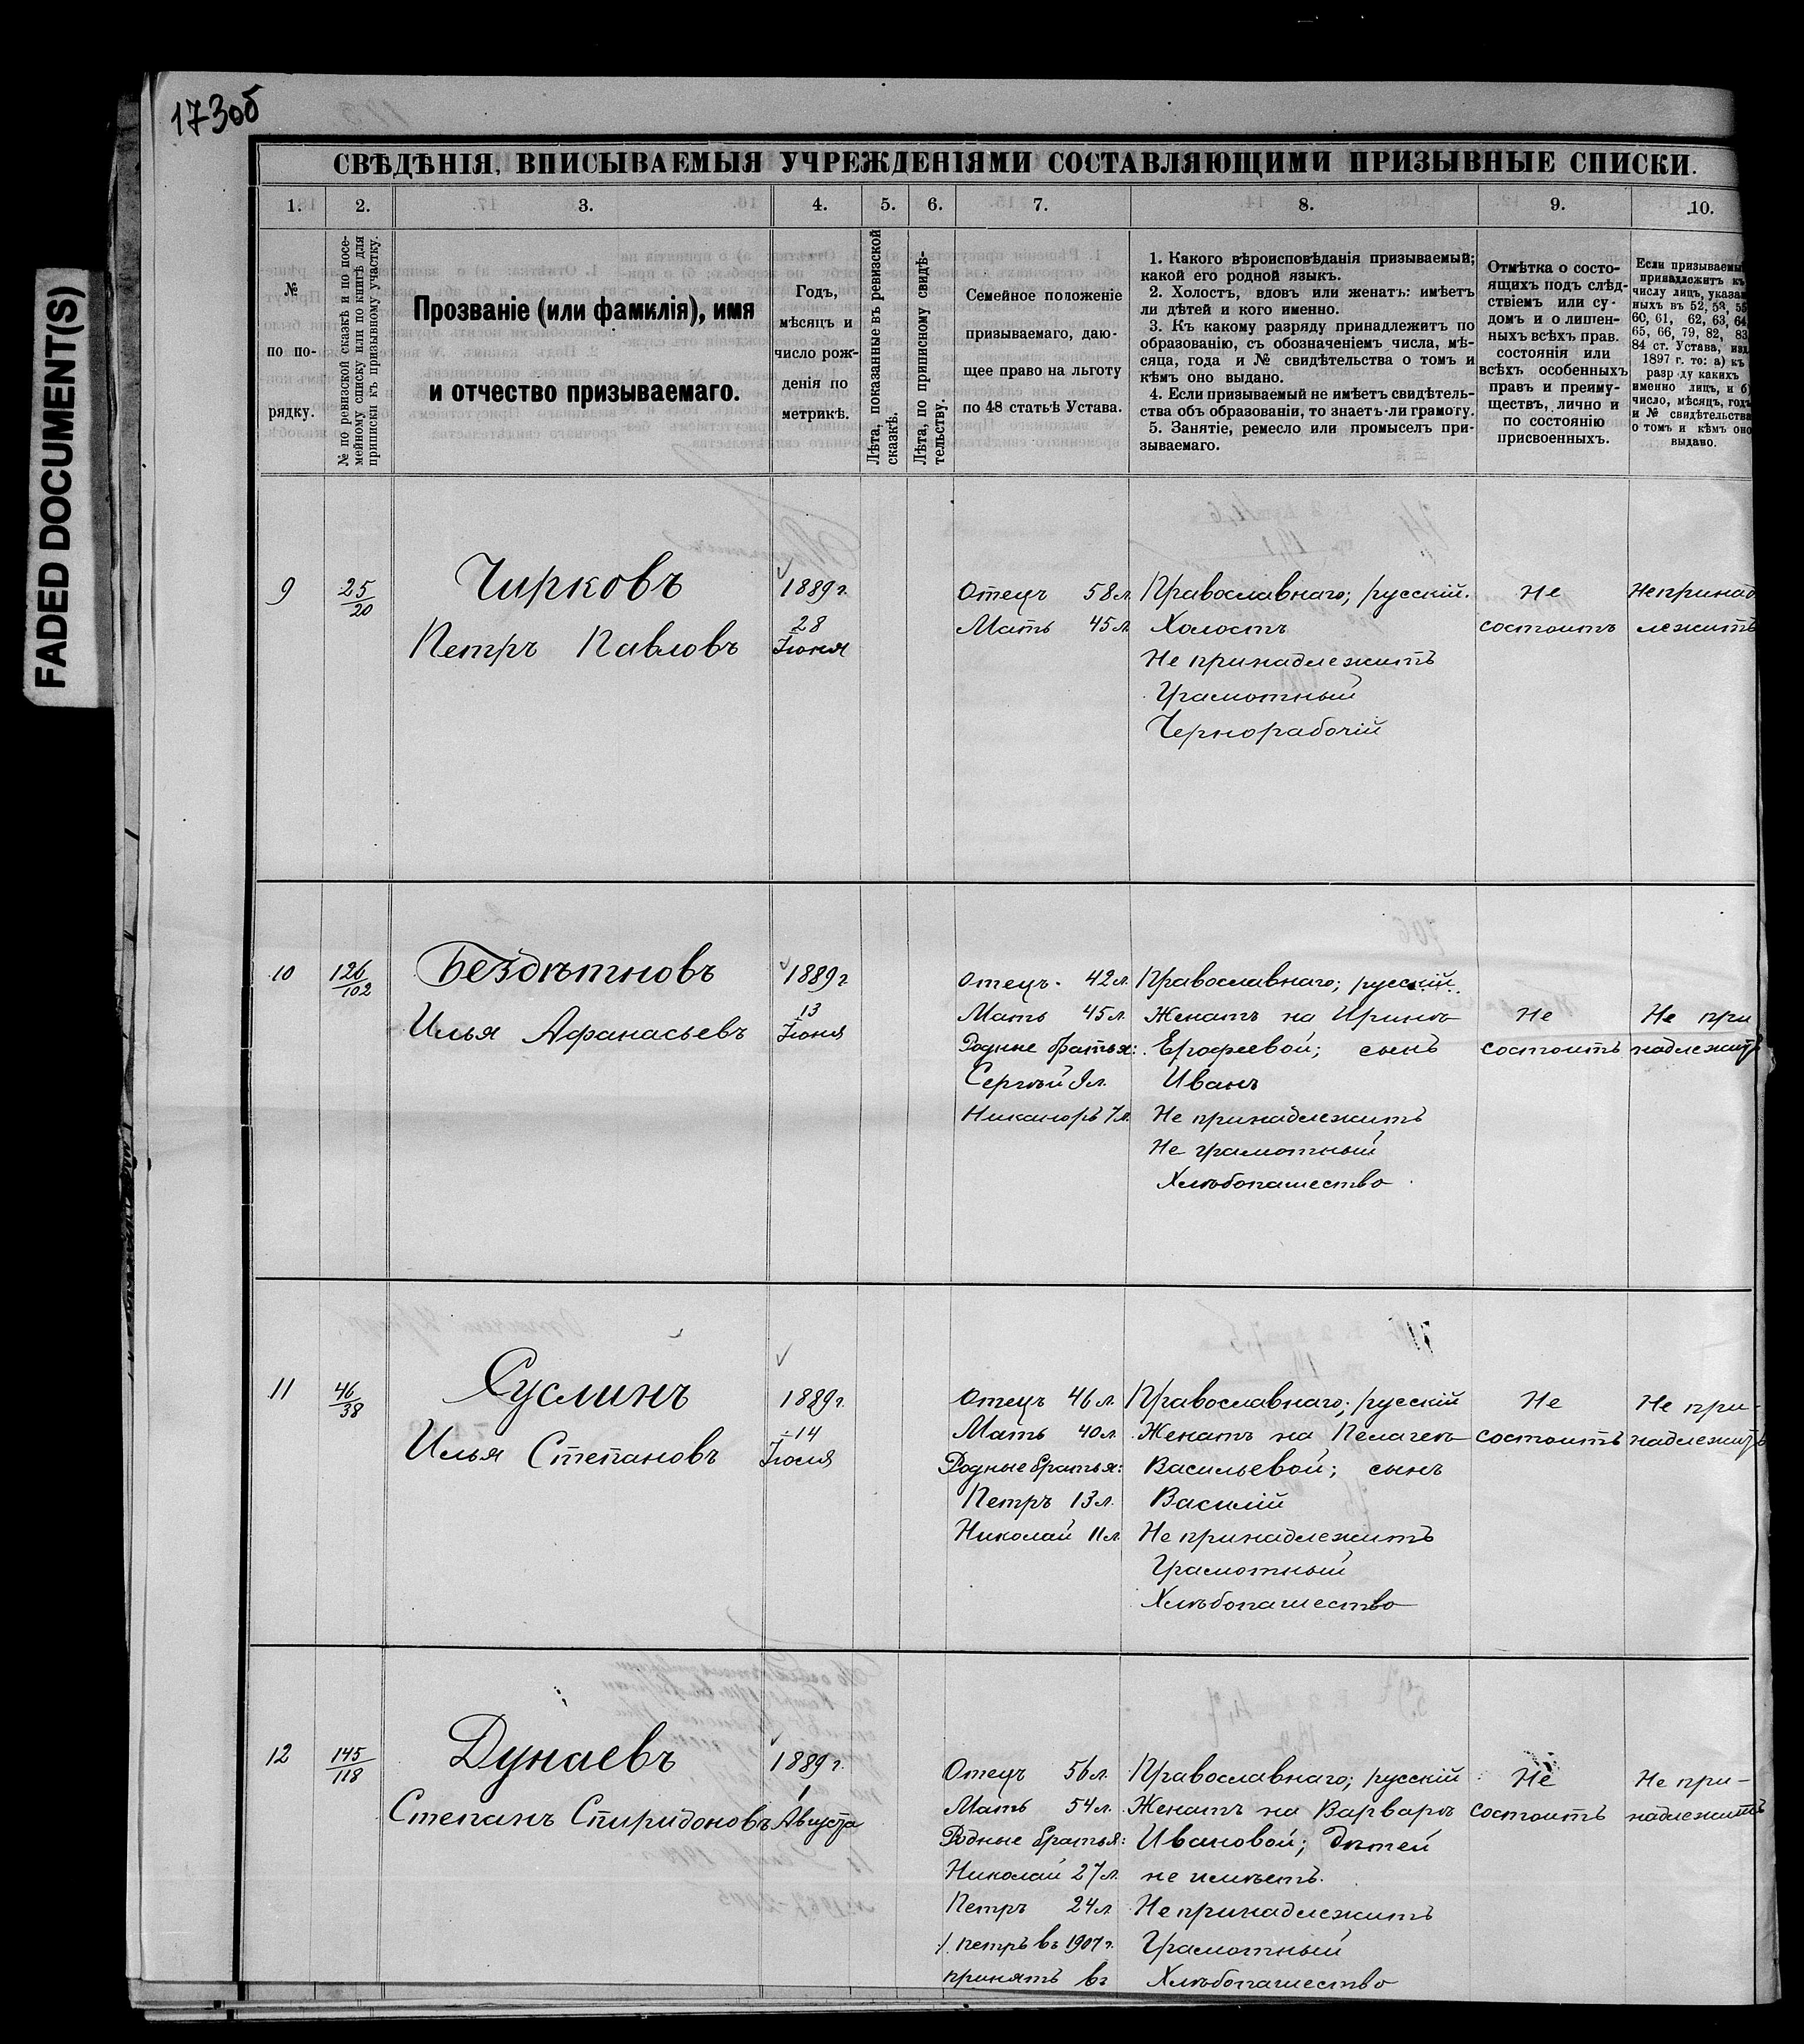 173об
FADED DOCUMENT(S)
СВѢДѢНІЯ, ВПИСЫВАЕМЫЯ УЧРЕЖДЕНІЯМИ СОСТАВЛЯЮЩИМИ ПРИЗЫВНЫЕ СПИСКИ.
1. 2. 3. 4. 5. 6. 7. 8. 9. 10.
№
по по-
рядку.
№ по ревизской сказкѣ и по посе-
мейному списку или по книгѣ для
приписки къ призывному участку.
Прозваніе (или фамилія), имя
и отчество призываемаго.
Годъ,
мѣсяцъ и
число рож-
денія по
метрикѣ.
Лѣта, показанные въ ревизской
сказкѣ.
Лѣта, по приписному свидѣ-
тельству.
Семейное положеніе
призываемаго, даю-
щее право на льготу
по 48 статьѣ Устава.
1. Какого вѣроисповѣданія призываемый;
какой его родной языкъ.
2. Холостъ, вдовъ или женатъ: имѣетъ
ли дѣтей и кого именно.
3. Къ какому разряду принадлежитъ по
образованію, съ обозначеніемъ числа, мѣ-
сяца, года и № свидѣтельства о томъ и
кѣмъ оно выдано.
4. Если призываемый не имѣетъ свидѣтель-
ства объ образованіи, то знаетъ-ли грамоту.
5. Занятіе, ремесло или промыселъ при-
зываемаго.
Отмѣтка о состо-
ящихъ подъ слѣд-
ствіемъ или су-
домъ и о лишен-
ныхъ всѣхъ прав.
состоянія или
всѣхъ особенныхъ
правъ и преиму-
ществъ, лично и
по состоянію
присвоенныхъ.
Если призываемы
принадлежитъ къ
числу лицъ, указан
ныхъ въ 52, 53, 55
60, 61, 62, 63, 64,
65, 66, 79, 82, 83,
84 ст. Устава, изд.
1897 г. то: а) къ
разр ду какихъ
именно лицъ, и б)
число, мѣсяцъ, годъ
и № свидѣтельства
о томъ и кѣмъ оно
выдано.
9
25/20
Чирковъ
Петръ Павловъ
1889 г.
28
Іюня
Отецъ 58 л.
Мать 45 л.
Православнаго; русскій.
Холостъ
Не принадлежитъ
Грамотный
Чернорабочій
Не
состоитъ
Не принад
лежитъ
10
126/102
Бездѣтновъ
Илья Афанасьевъ
1889 г
13
Іюня
Отецъ. 42 л.
Мать 45 л.
Родные братья:
Сергѣй 9 л.
Никаноръ 7 л.
Православнаго; русскій.
Женатъ на Иринѣ
Ерофеевой; сынъ
Иванъ
Не принадлежитъ
Не грамотный
Хлѣбопашество
Не
состоитъ
Не при
надлежитъ
11
46/38
Суслинъ
Илья Степановъ
1889 г.
14
Іюля
Отецъ 46 л.
Мать 40 л.
Родные братья:
Петръ 13 л.
Николай 11 л.
Православнаго; русскій
Женатъ на Пелагеѣ
Васильевой; сынъ
Василій
Не принадлежитъ
Грамотный
Хлѣбопашество
Не
состоитъ
Не при-
надлежитъ
12
145/118
Дунаевъ
Степанъ Спиридоновъ
1889 г.
1
Августа
Отецъ 56 л.
Мать 54 л.
Родные братья:
Николай 27 л.
Петръ 24 л.
/ петръ въ 1907 г.
принятъ въ
Православнаго; русскій
Женатъ на Варварѣ
Ивановой; дѣтей
не имѣетъ.
Не принадлежитъ
Грамотный
Хлѣбопашество
Не
состоитъ
Не при-
надлежитъ